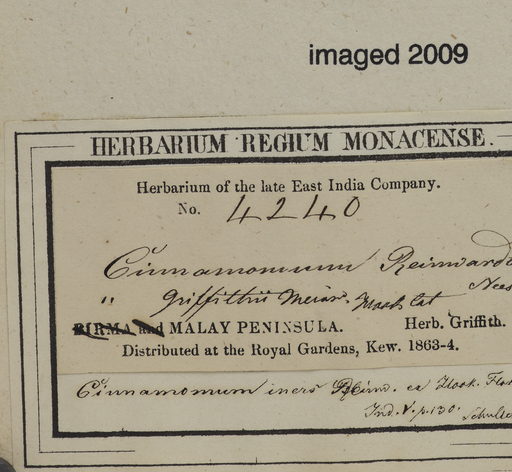 imaged 2009
HERBARIUM REGIUM MONACENSE.
Herbarium of the late East India Company.
No. 4240
Cinnamomum Reinwardt
Nees
" Griffithii Meissn.
BIRMA and MALAY PENINSULA. Herb. Griffith.
Distributed at the Royal Gardens, Kew. 1863-4.
Cinnamomum iners Reinw. ex Hook. Flor
Ind. V. p. 130.